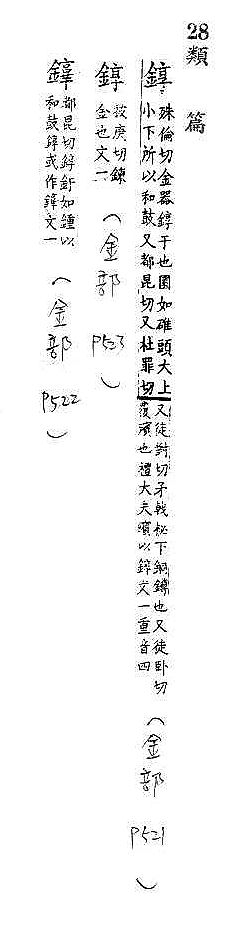 28 類篇
錞 殊倫切金器錞于也圜如碓頭大上
小下所以和鼓又都昆切又杜罪切
又徒對切矛戟柲下銅鐏也又徒臥切
覆殯也禮大夫殯以錞文一重音四
（金部 P521）
錞 披庚切鍊
金也文一
（金部 P523）
錞 都昆切錞釪如鍾以
和鼓錞或作錞文一
（金部 P522）